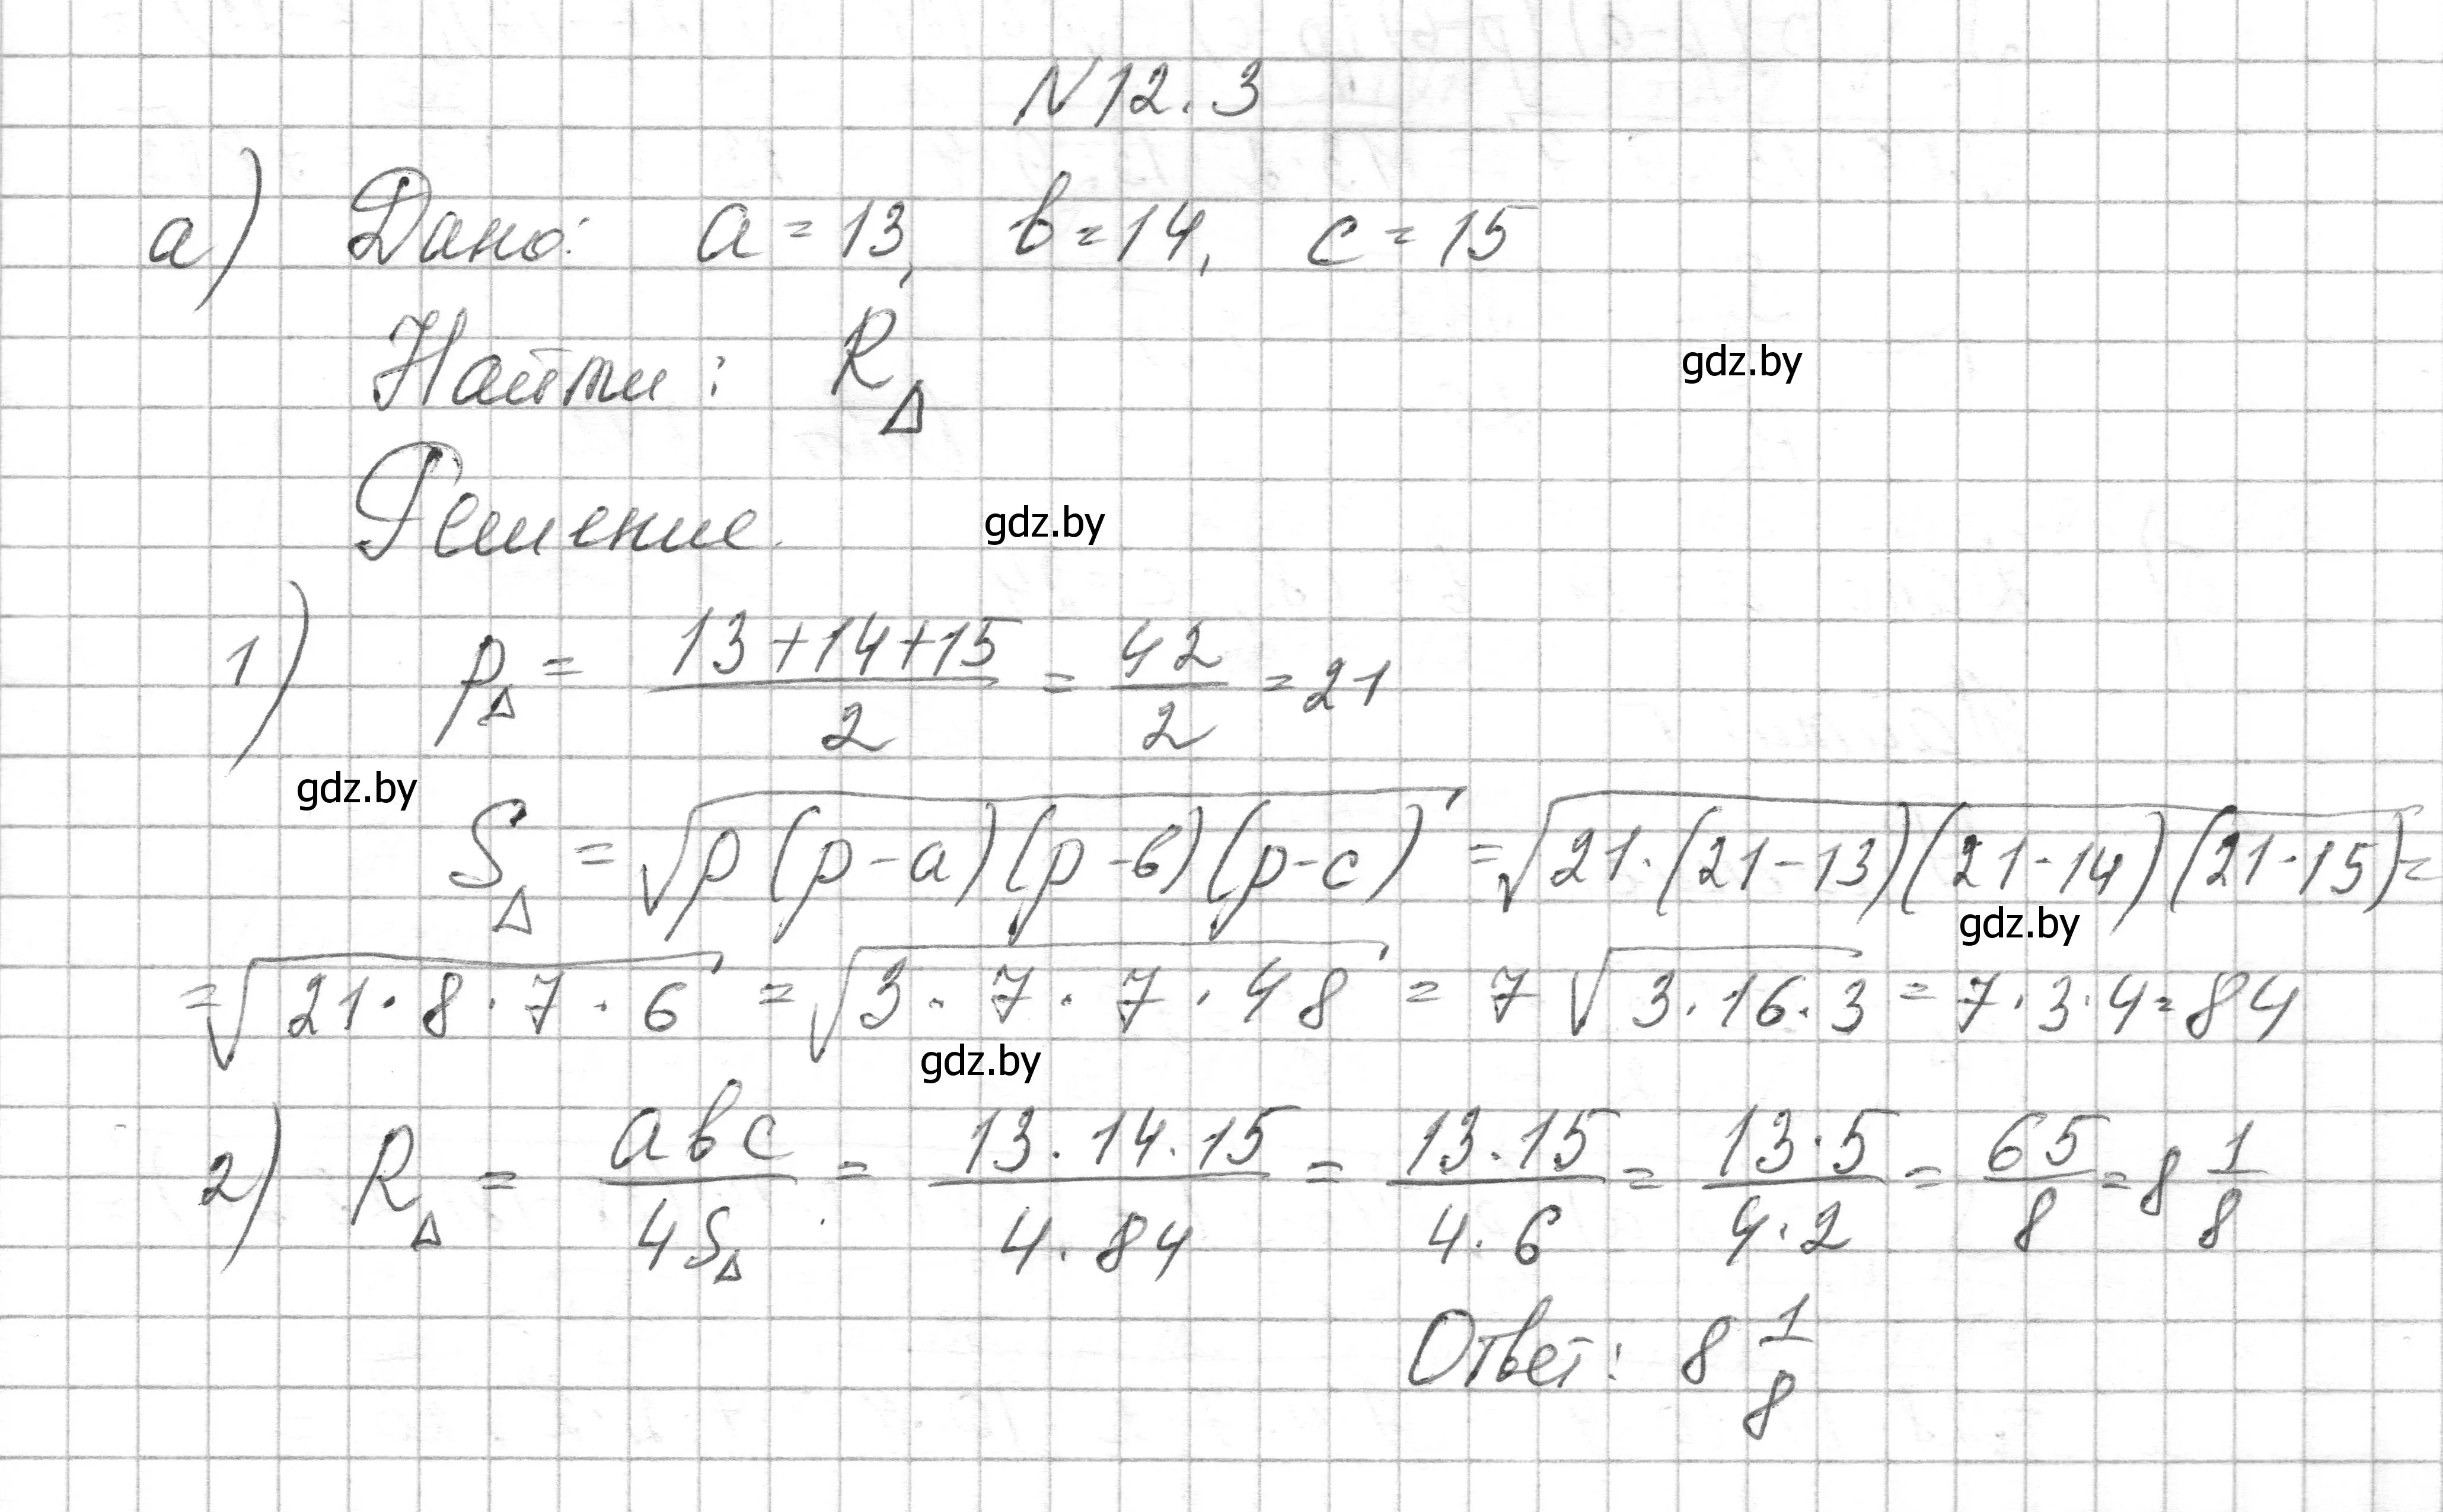 N12.3
а) Дано: a = 13, b = 14, c = 15
Найти: R△
gdz.by
Решение.
gdz.by
1) p△ = (13+14+15)/2 = 42/2 = 21
gdz.by
S△ = √(p(p-a)(p-b)(p-c)) = √(21·(21-13)(21-14)(21-15)) =
gdz.by
= √(21·8·7·6) = √(3·7·7·48) = 7√(3·16·3) = 7·3·4 = 84
gdz.by
2) R△ = abc/4S△ = 13·14·15/4·84 = 13·15/4·6 = 13·5/4·2 = 65/8 = 8 1/8
Ответ: 8 1/8